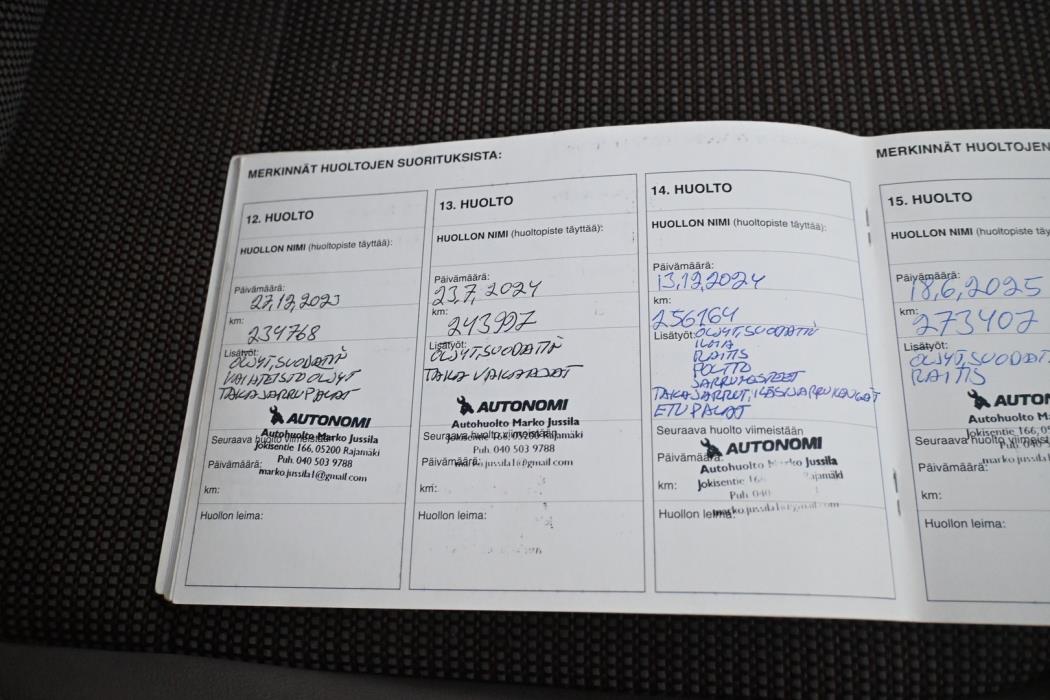 MERKINNÄT HUOLTOJEN SUORITUKSISTA:
12. HUOLTO
HUOLLON NIMI (huoltopiste täyttää):
Päivämäärä:
27,12,2023
km:
234768
Lisätyöt:
ÖLJYT, SUODATIN
VAIHTEISTO ÖLJYT
TAKAJARRUPALAT
AUTONOMI
Autohuolto Marko Jussila
Seuraava huolto viimeistään
Jokisentie 166, 05200 Rajamäki
Puh. 040 503 9788
Päivämäärä:
marko.jussila1@gmail.com
km:
Huollon leima:
13. HUOLTO
HUOLLON NIMI (huoltopiste täyttää):
Päivämäärä:
23,7,2024
km:
243997
Lisätyöt:
ÖLJYT, SUODATIN
TAKA
AUTONOMI
Autohuolto Marko Jussila
Seuraava huolto viimeistään
Jokisentie 166, 05200 Rajamäki
Päivämäärä:
marko.jussila1@gmail.com
km:
Huollon leima:
14. HUOLTO
HUOLLON NIMI (huoltopiste täyttää):
Päivämäärä:
13,12,2024
km:
256164
Lisätyöt:
ÖLJYT, SUODATIN
ILMA
RAITIS
POLTTO
JARRUNESTEET
TAKAJARRUT, KÄSIJARRUKENGÄT
ETUPALAT
Seuraava huolto viimeistään
AUTONOMI
Päivämäärä:
Autohuolto Marko Jussila
km:
Jokisentie 166 Rajamäki
Puh. 040
Huollon leima:
marko.jussila1@gmail.com
MERKINNÄT HUOLTOJEN
15. HUOLTO
HUOLLON NIMI (huoltopiste täy
Päivämäärä:
18,6,2025
km:
273407
Lisätyöt:
ÖLJYT, SUODAT
RAITIS
AUTON
Autohuolto M
Jokisentie 166, 05
Seuraava huolto viimeist
Puh. 040 5
Päivämäärä:
marko.jussil
km:
Huollon leima: